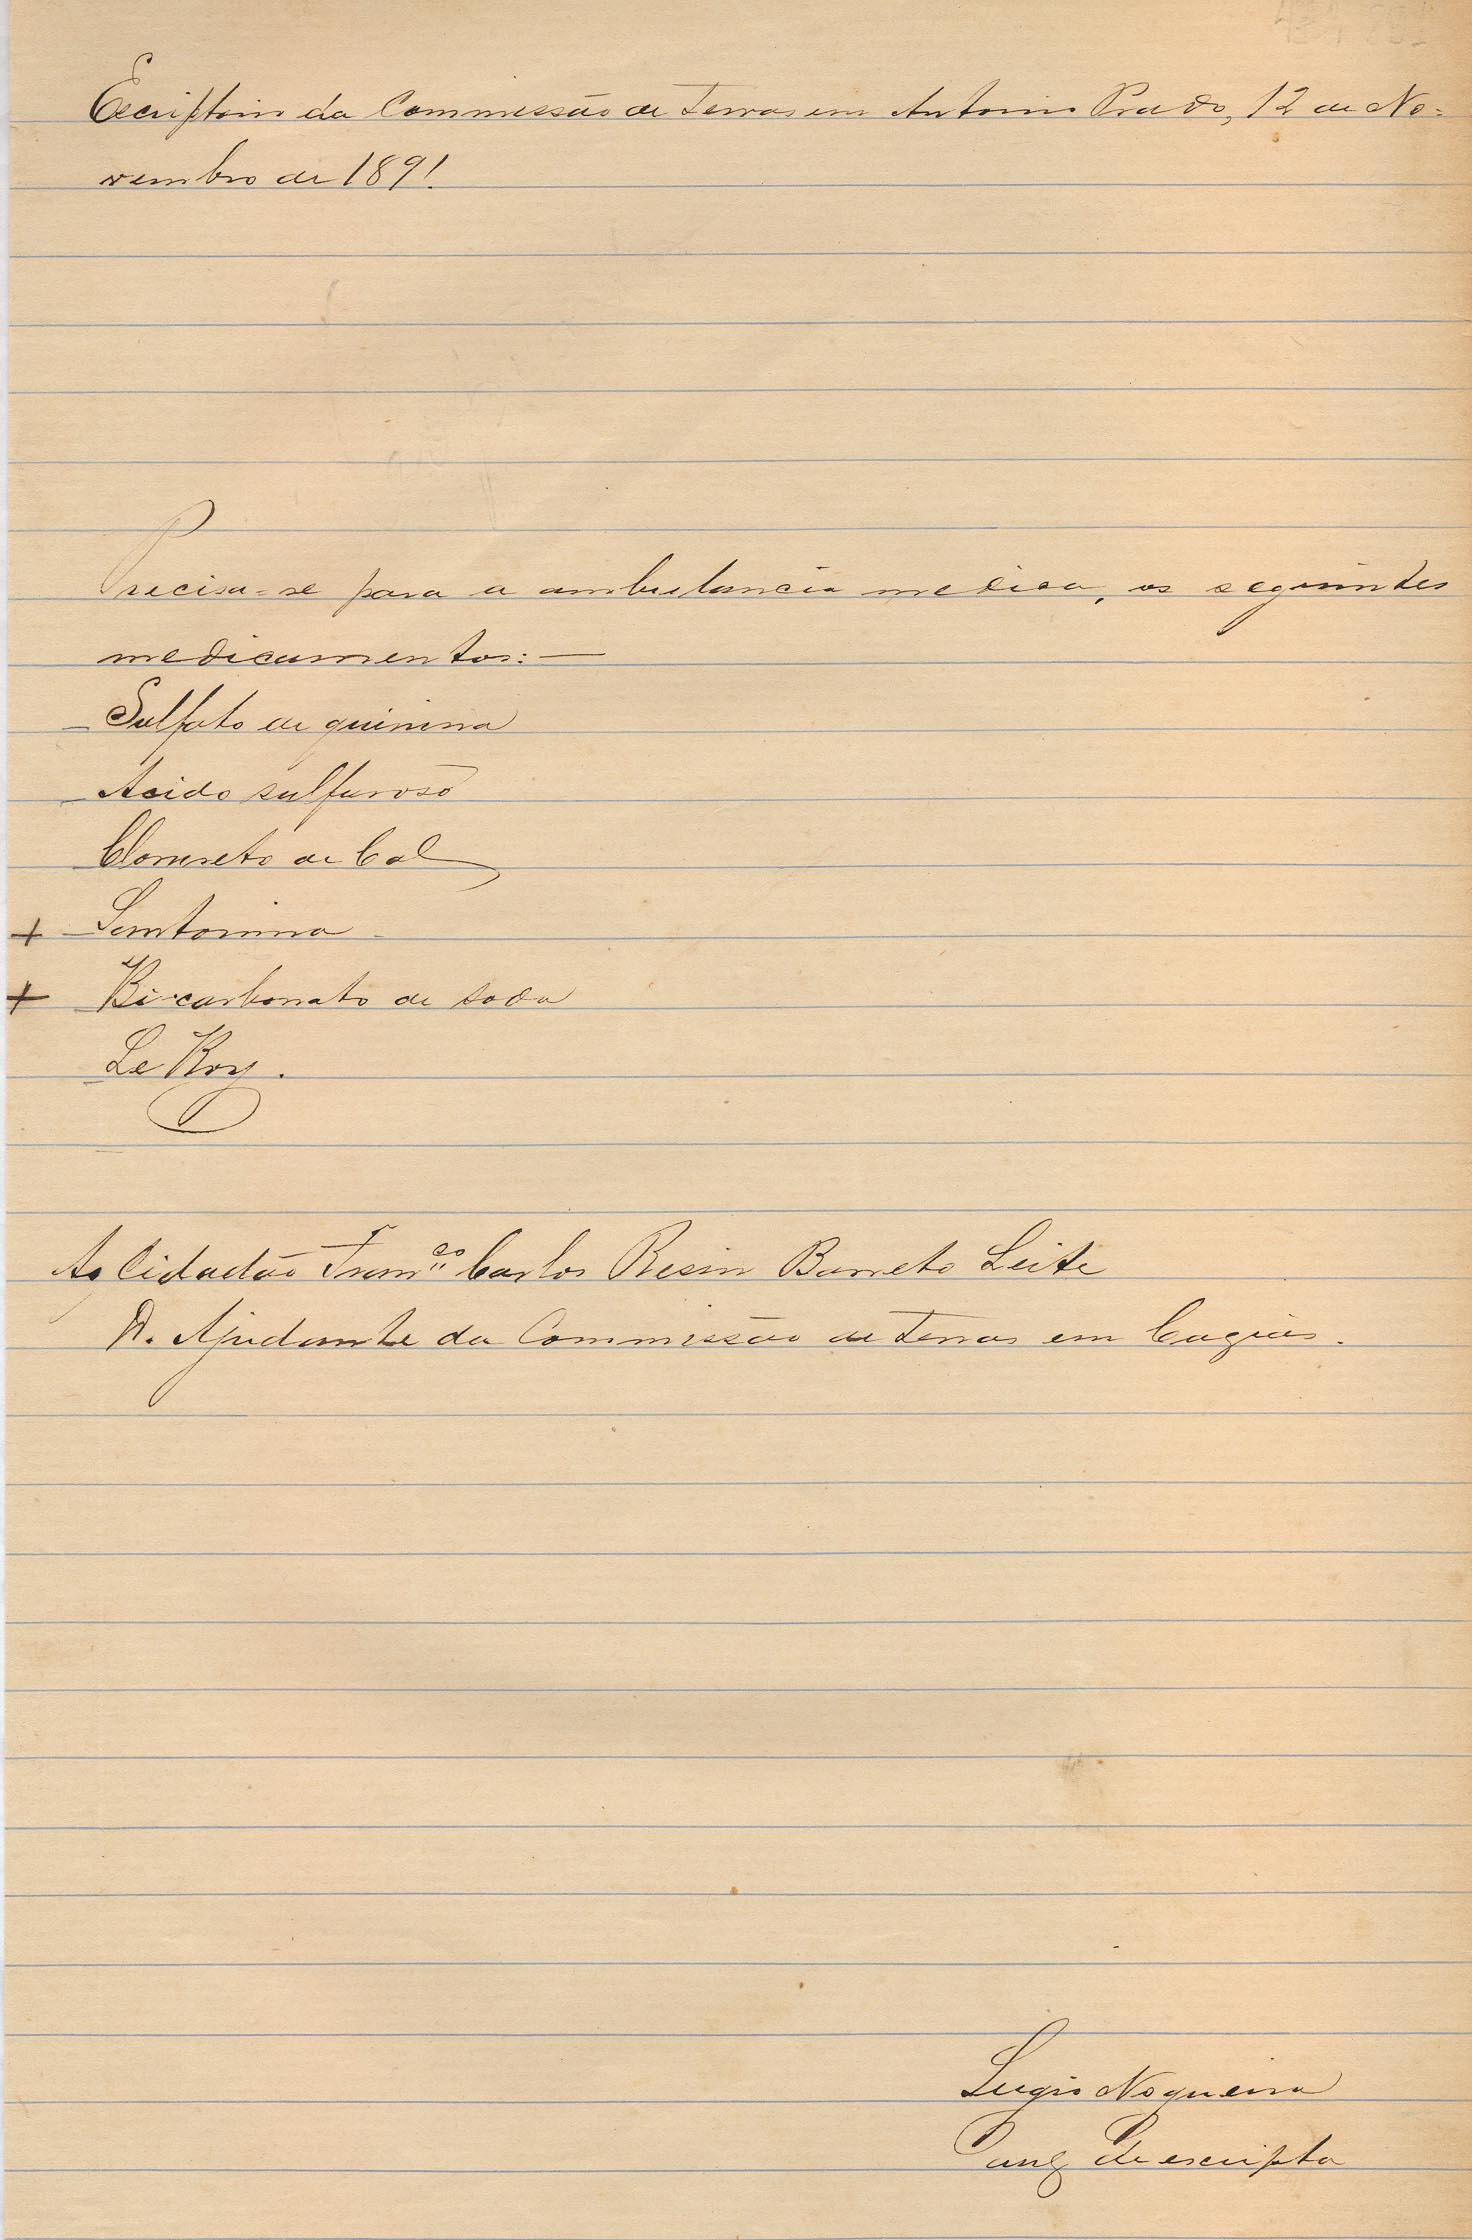 Escriptorio da Commissão de Terras em Antonio Prado, 12 de No=
vembro de 1891.
Precisa-se para a ambulancia medica, os seguintes
medicamentos:—
Sulfato de quinina
Acido sulfuroso
Clorureto de Cal
+ Santonina
+ Bi-carbonato de soda
Le Roy.
Ao Cidadão Franco Carlos Resin Barreto Leite
D. Ajudante da Commissão de Terras em Caxias.
Lugio Nogueira
de escripta